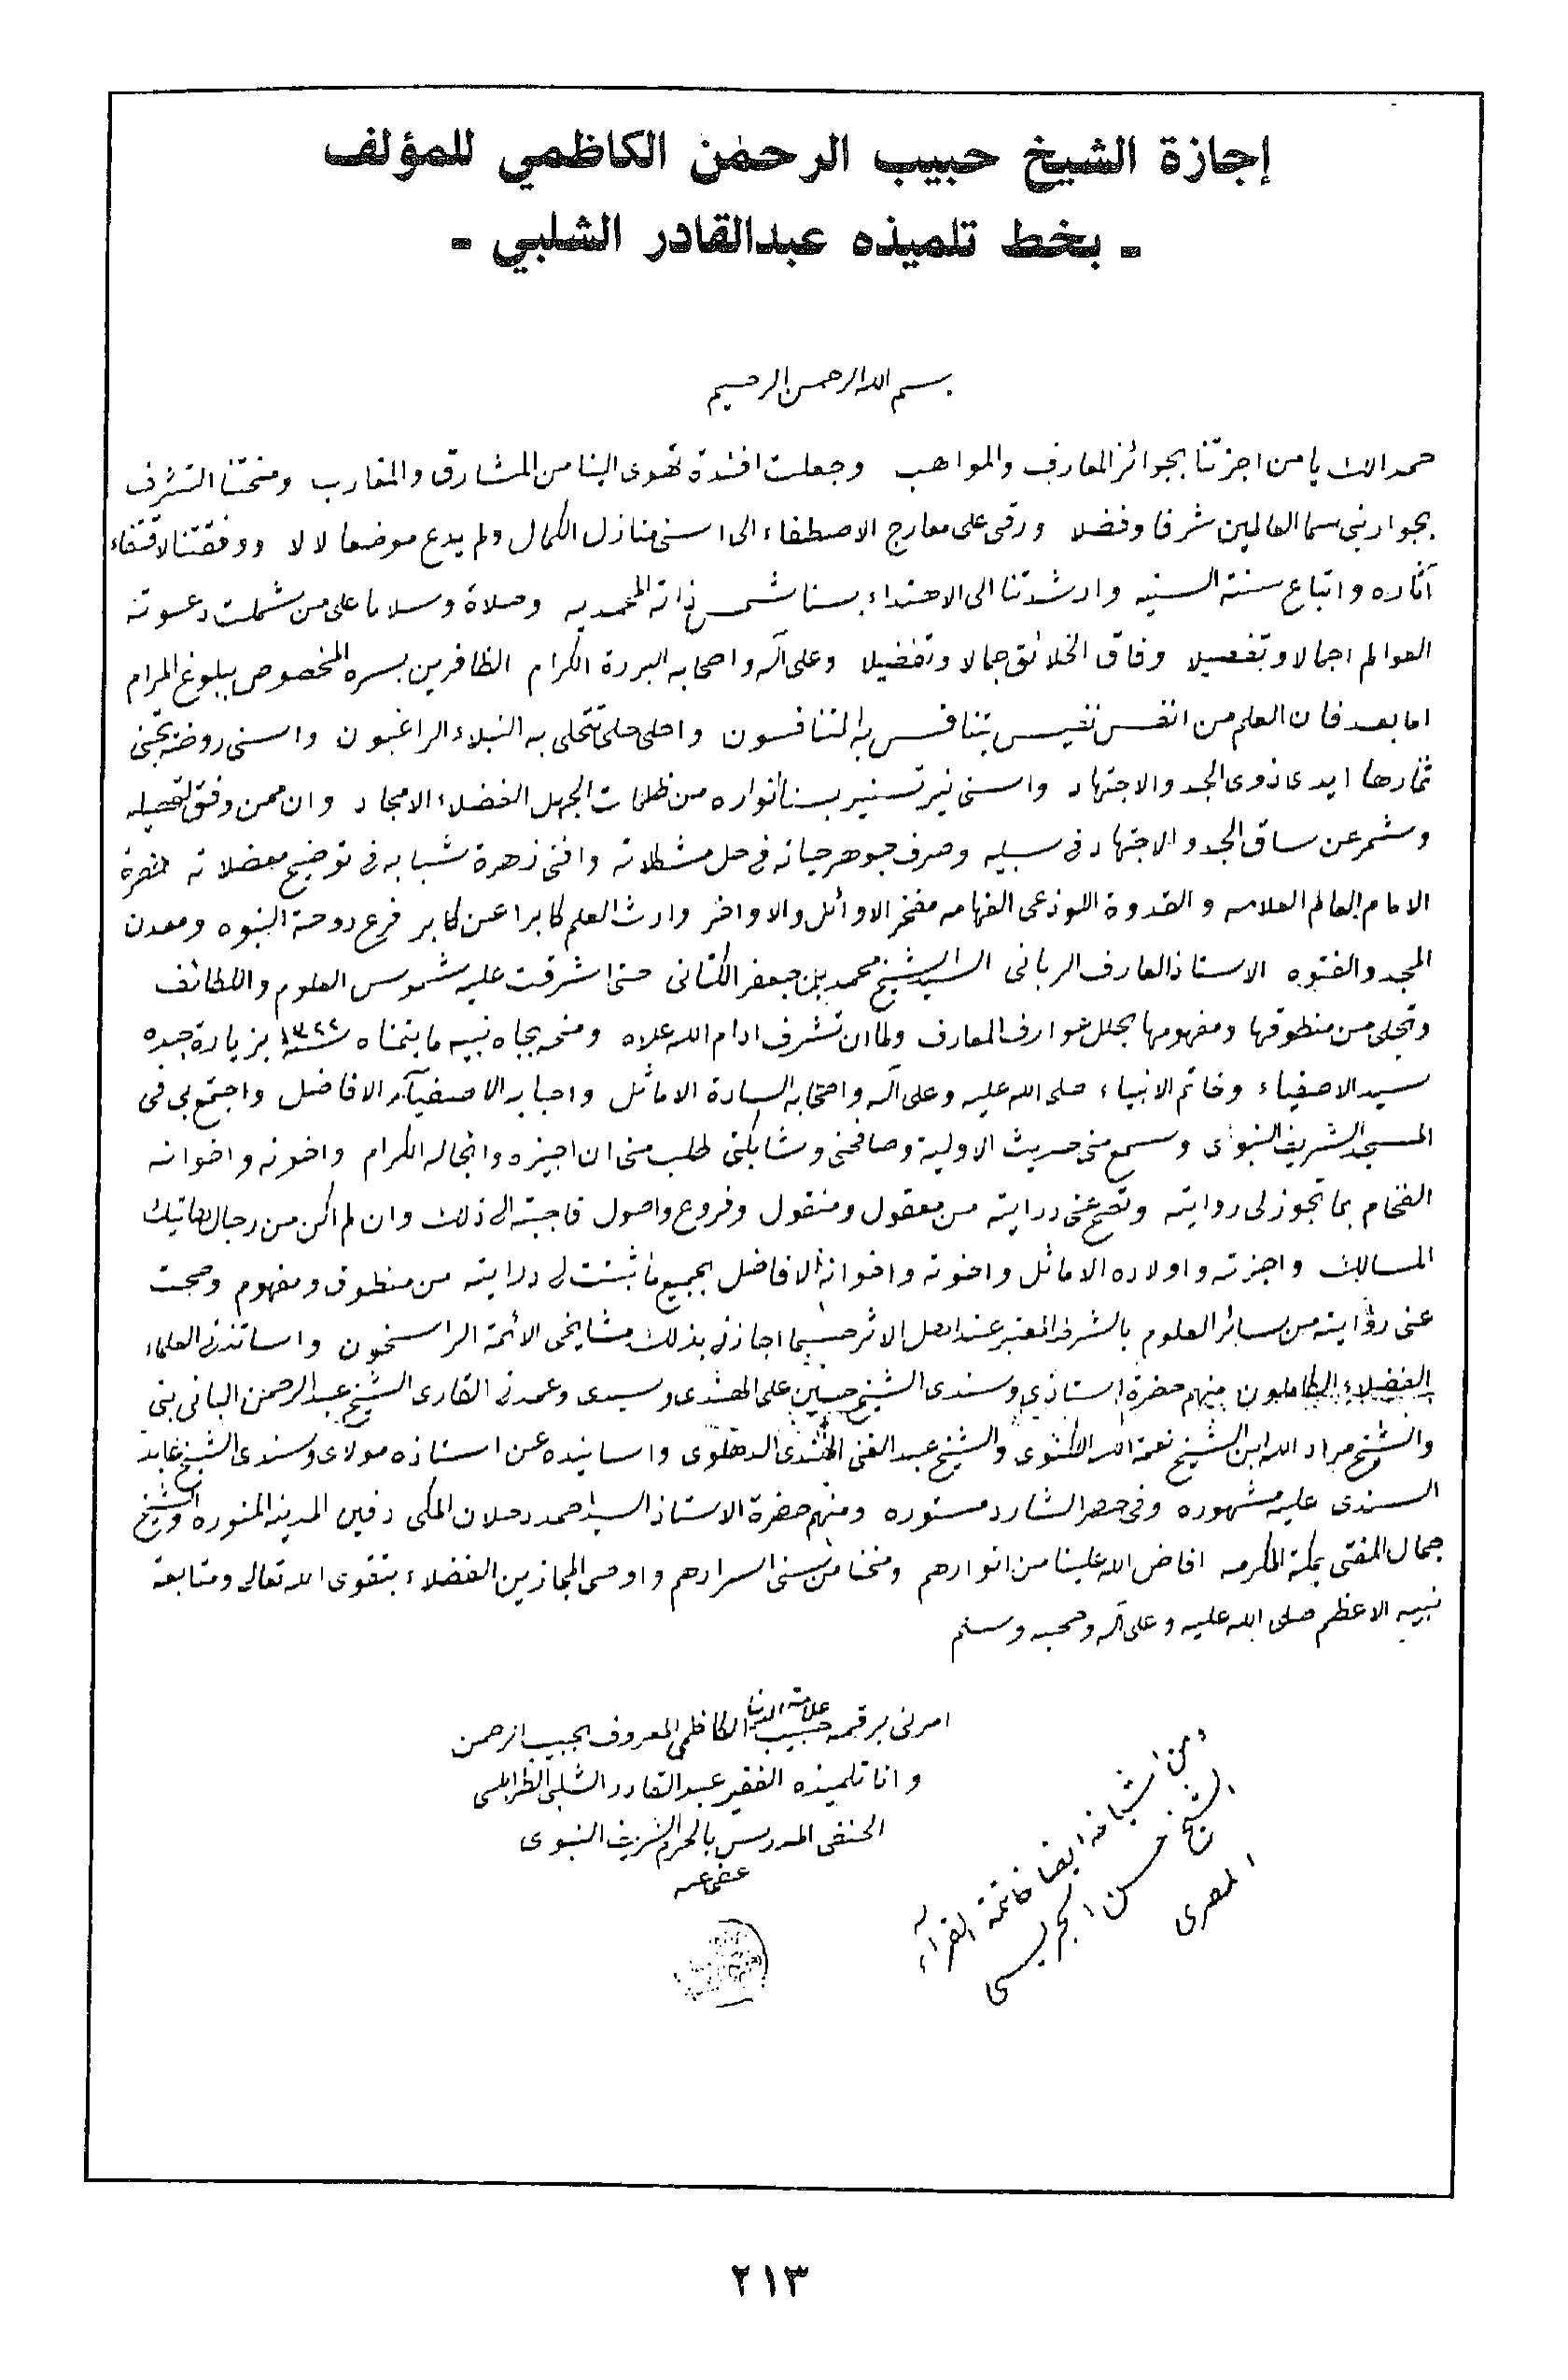 إجازة الشيخ حبيب الرحمن الكاظمي للمؤلف
ـ بخط تلميذه عبدالقادر الشلبي ـ
بسم الله الرحمن الرحيم
حمدا لك يا من اجزتنا بجوائز المعارف والمواهب وجعلت افئدة تهوى الينا من المشارق والمغارب ومنحتنا التشرف
بجوار نبى سما العالمين شرفا وفضلا ورقى على معارج الاصطفاء الى اسنى منازل الكمال ولم يدع موضعا لالا ووفقتنا لاقتفاء
آثاره واتباع سنته السنيه وارشدتنا الى الاهتداء بسنا شمس ذاته المحمديه وصلاة وسلاما على من شملت دعوته
العوالم اجمالا وتفصيلا وفاق الخلائق جمالا وتفضيلا وعلى آله واصحابه البررة الكرام الظافرين بسره المخصوص ببلوغ المرام
اما بعد فان العلم من انفس نفيس يتنافس به المتنافسون واحلى حلى تتحلى به النبلاء الراغبون واسنى روضة تجنى
ثمارها ايدى ذوى الجد والاجتهاد واسنى نير تستنير بسنا انواره من ظلمات الجهل الفضلاء الامجاد وان ممن وفق لتحصيله
وشمر عن ساق الجد والاجتهاد فى سبيله وصرف جوهر حياته فى حل مشكلاته وافنى زهرة شبابه فى توضيح معضلاته حضرة
الامام العالم العلامه والقدوة اللوذعى الفهامه مفخر الاوائل والاواخر وارث العلم كابرا عن كابر فرع دوحة النبوه ومعدن
المجد والفتوه الاستاذ العارف الربانى السيد الشيخ محمد بن جعفر الكتانى حتى اشرقت عليه شموس العلوم واللطائف
وتجلى من منطوقها ومفهومها بحلل عوارف المعارف ولما ان تشرف ادام الله علاه ومنحه بجاه نبيه ما يتمناه سنة ١٣٢٤ بزيارة جده
سيد الاصفياء وخاتم الانبياء صلى الله عليه وعلى آله واصحابه السادة الاماثل واحبابه الاصفياء الافاضل واجتمع بى فى
المسجد الشريف النبوى وسمع منى حديث الاولية وصافحنى وشابكنى طلب منى ان اجيزه وانجاله الكرام واخوته واخوانه
الفخام بما تجوز لى روايته وتصح عنى درايته من معقول ومنقول وفروع واصول فاجبته الى ذلك وان لم اكن من رجال هاتيك
المسالك واجزته واولاده الاماثل واخوته واخوانه الافاضل بجميع ما ثبتت لى درايته من منطوق ومفهوم وصحت
عنى روايته من سائر العلوم بالشرط المعتبر عند اهل الاثر حسبما اجازنى بذلك مشايخى الائمة الراسخون واساتذتى العلماء
الفضلاء الكاملون منهم حضرة استاذى وسندى الشيخ حسين على الهندى وسيدى وعمدتى القارى الشيخ عبد الرحمن البانى بتى
والشيخ مراد الله ابن الشيخ نعمة الله اللكنوى والشيخ عبد الغنى الهندى الدهلوى واسانيده عن استاذه مولاى وسندى الشيخ عابد
السندى عليه مشهوره وفى حصر الشارد مستوره ومنهم حضرة الاستاذ السيد احمد دحلان المكى دفين المدينة المنوره والشيخ
جمال المفتى بمكة المكرمه افاض الله علينا من انوارهم ومنحنا من سنى اسرارهم واوصى المجازين الفضلاء بتقوى الله تعالى ومتابعة
نبيه الاعظم صلى الله عليه وعلى آله وصحبه وسلم
امرنى برقمه علامة الدنيا حبيب الكاظمى المعروف بحبيب الرحمن
وانا تلميذه الفقير عبد القادر الشلبى الطرابلسى
الحنفى المدرس بالحرم الشريف النبوى
عفى عنه
ومن اشياخه ايضا خاتمة القراء
الشيخ حسن الجريسى
المصرى
٢١٣